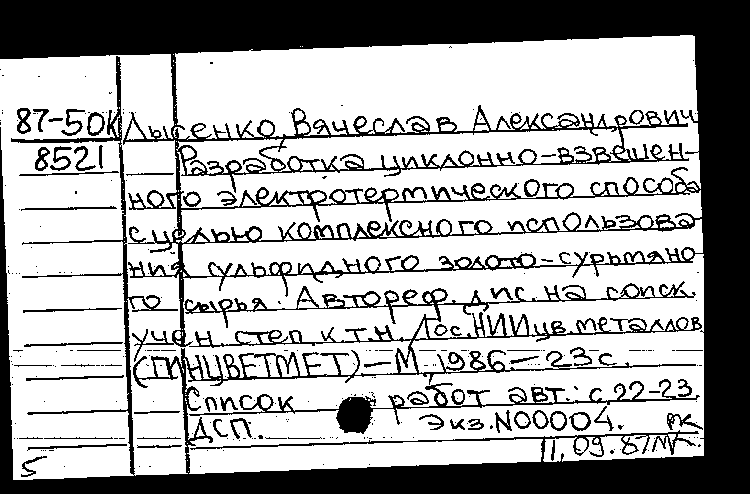 87-50К Лысенко, Вячеслав Александрович
8521 Разработка циклонно-взвешен-
ного электротермического способа
с целью комплексного использова-
ния сульфидного золото-сурьмяно-
го сырья. Автореф. дис. на соиск.
учен. степ. к.т.н. /Гос.НИИ цв.металлов
(ГИНЦВЕТМЕТ)—М., 1986.—23с.
Список работ авт.: с.22-23.
ДСП. Экз.N00004.
11.09.87
5